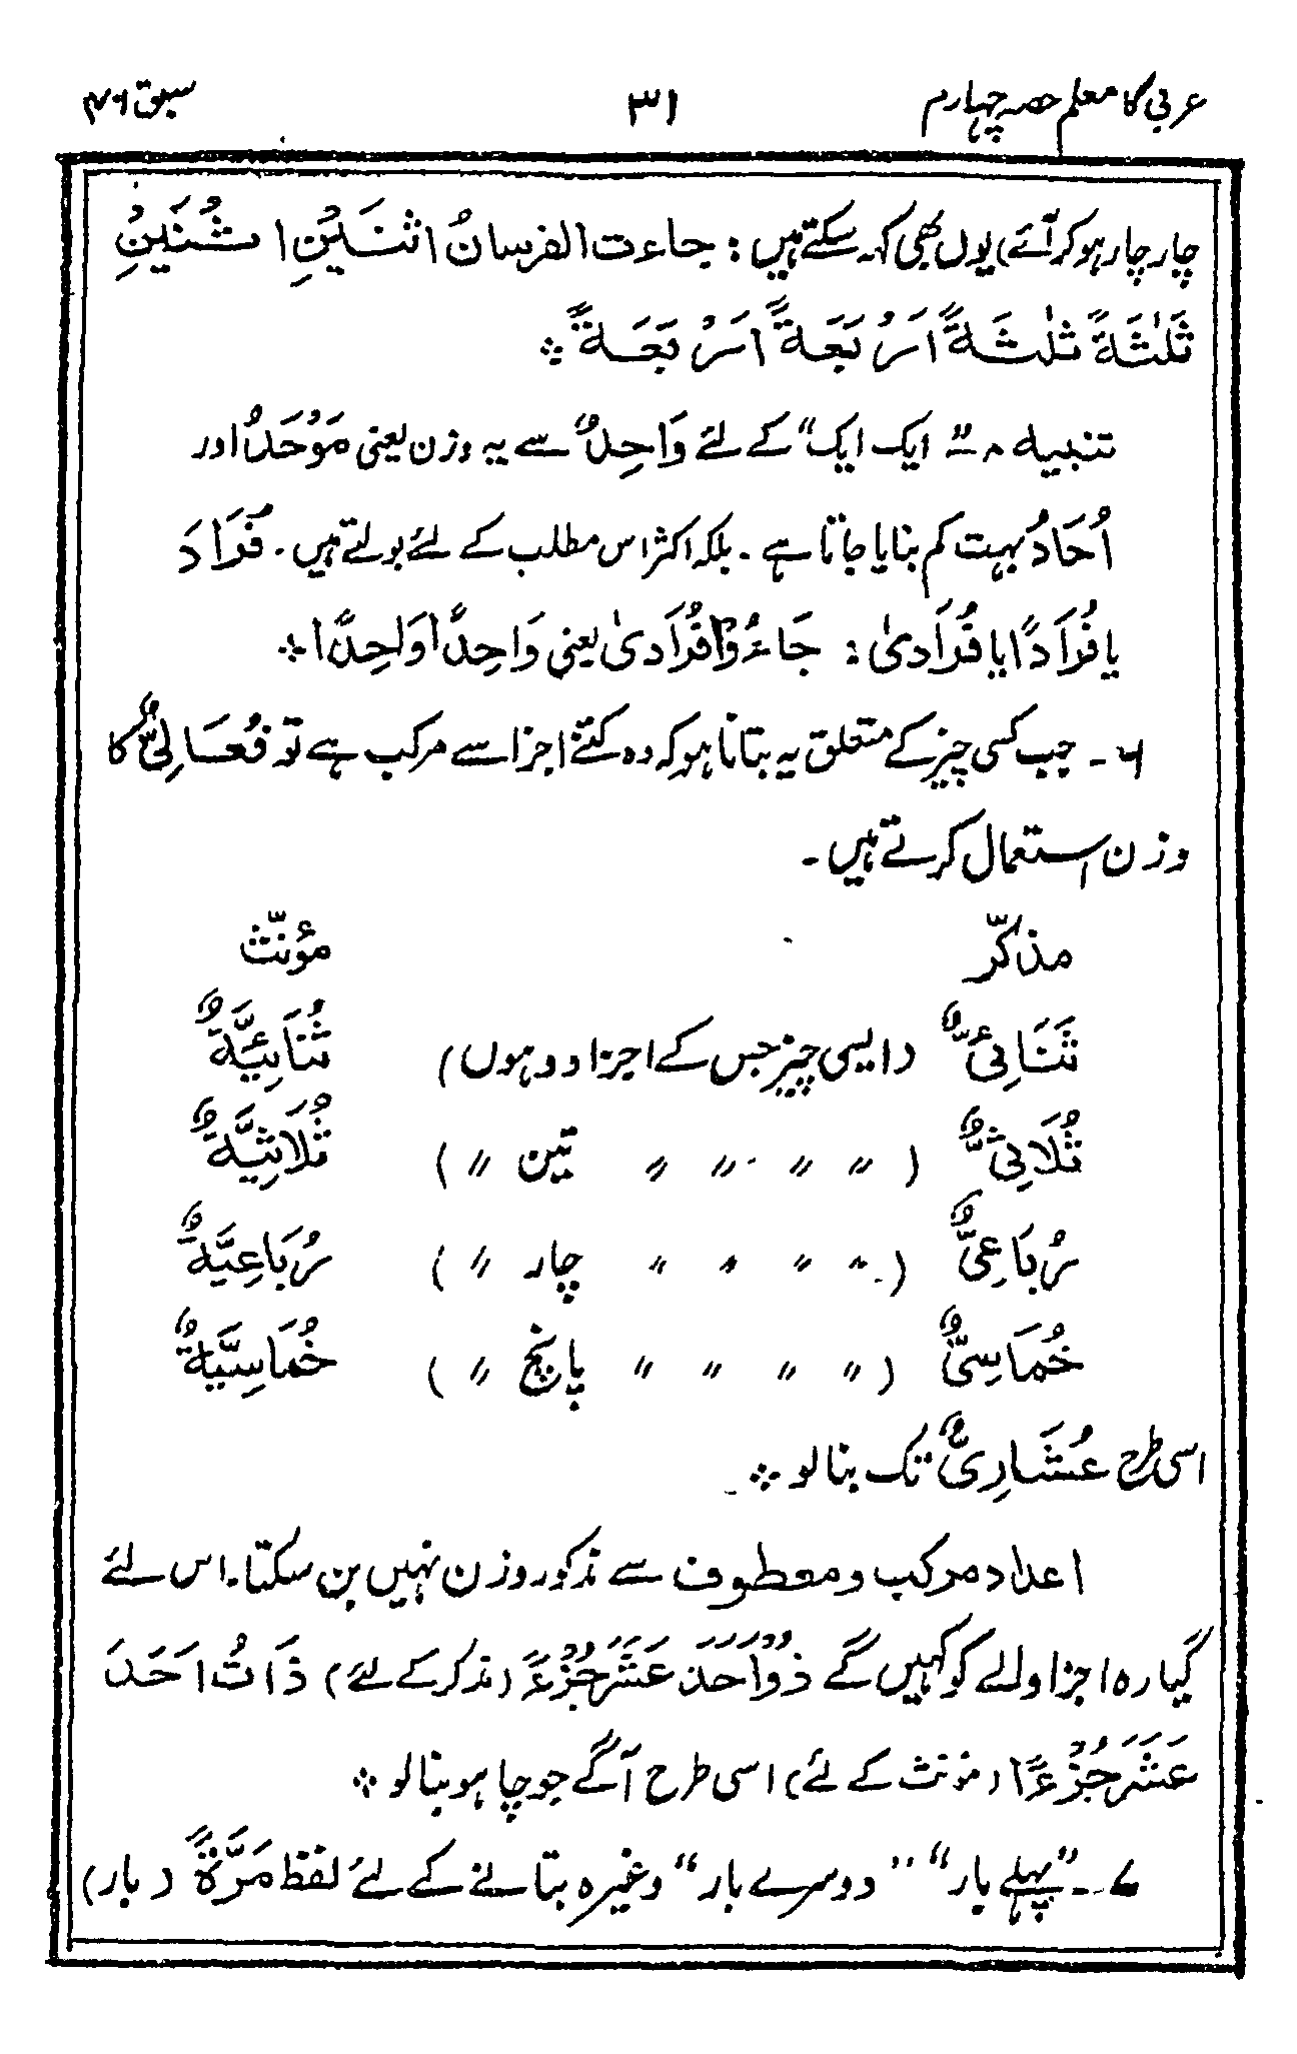 عربی کا معلم حصہ چہارم ۳۱ سبق ۴۶
چار چار ہو کر آئے) یوں بھی کہہ سکتے ہیں : جاءت الفرسانُ اثنَیْنِ اثْنَیْنِ
ثَلٰثَةً ثلٰثَةً اَرْبَعَةً اَرْبَعَةً ؞
تنبیہ ۸ ۔ "ایک ایک" کے لئے وَاحِدٌ سے یہ وزن یعنی مَوْحَدُ اور
اُحَادُ بہت کم بنایا جاتا ہے ۔ بلکہ اکثر اس مطلب کے لئے بولتے ہیں ۔ فُرَادَ
یا فُرَادًا یا فُرَادیٰ : جَاءُوْا فُرَادیٰ یعنی وَاحِدًا وَاحِدًا ؞
۶ ۔ جب کسی چیز کے متعلق یہ بتانا ہو کہ وہ کتنے اجزا سے مرکب ہے تو فُعَالِیٌّ کا
وزن استعمال کرتے ہیں ۔
مذکّر مؤنّث
ثُنَائِیٌّ (ایسی چیز جس کے اجزا دو ہوں) ثُنَائِیَّةٌ
ثُلَاثِیٌّ ( 〃 〃 〃 〃 تین 〃 ) ثُلَاثِیَّةٌ
رُبَاعِیٌّ ( 〃 〃 〃 〃 چار 〃 ) رُبَاعِیَّةٌ
خُمَاسِیٌّ ( 〃 〃 〃 〃 پانچ 〃 ) خُمَاسِیَّةٌ
اسی طرح عُشَارِیٌّ تک بنا لو ؞
اعداد مرکب و معطوف سے مذکور وزن نہیں بن سکتا ۔ اس لئے
گیارہ اجزا والے کو کہیں گے ذُوْاَحَدَ عَشَرَ جُزْءً (مذکر کے لئے) ذَاتُ اَحَدَ
عَشَرَ جُزْءًا (مؤنث کے لئے) اسی طرح آگے جو چاہو بنا لو ؞
۷ ۔ "پہلے بار" "دوسرے بار" وغیرہ بتانے کے لئے لفظ مَرَّةً (بار)